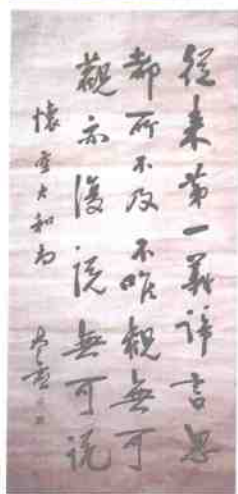 從来第一義諦言思
都所不及不唯観無可
觀亦復説無可説
懐雲大和尚